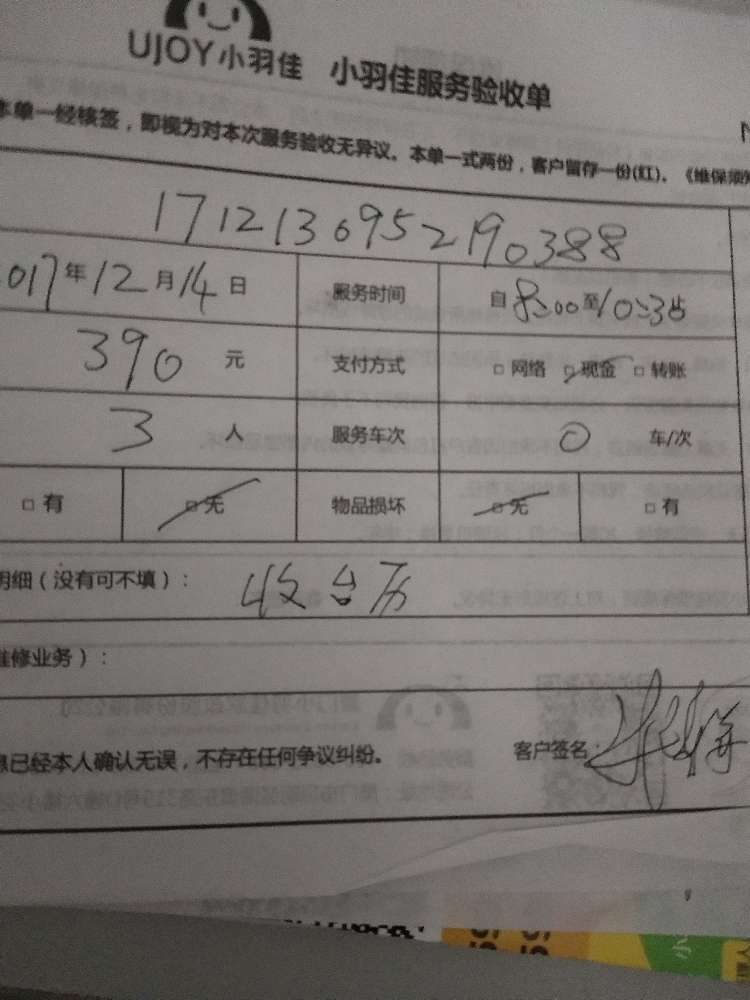 UJOY小羽佳 小羽佳服务验收单
本单一经核签，即视为对本次服务验收无异议。本单一式两份，客户留存一份(红)、《维保须知
1712130952190388
2017年12月14日 服务时间 自8:00至10:35
390元 支付方式 □网络 □现金 □转账
3人 服务车次 0车/次
□有 □无 物品损坏 □无 □有
明细（没有可不填）： 收台历
修业务）：
息已经本人确认无误，不存在任何争议纠纷。 客户签名：